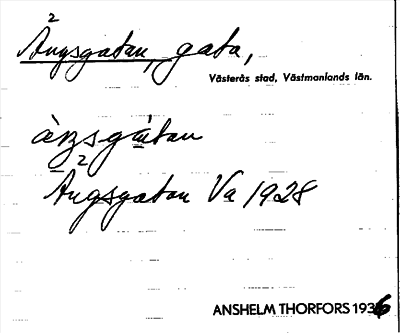 2
Ängsgatan, gata,
Västerås stad, Västmanlands län.
àŋsgàtan
2
Ängsgatan Va 1928
ANSHELM THORFORS 1936